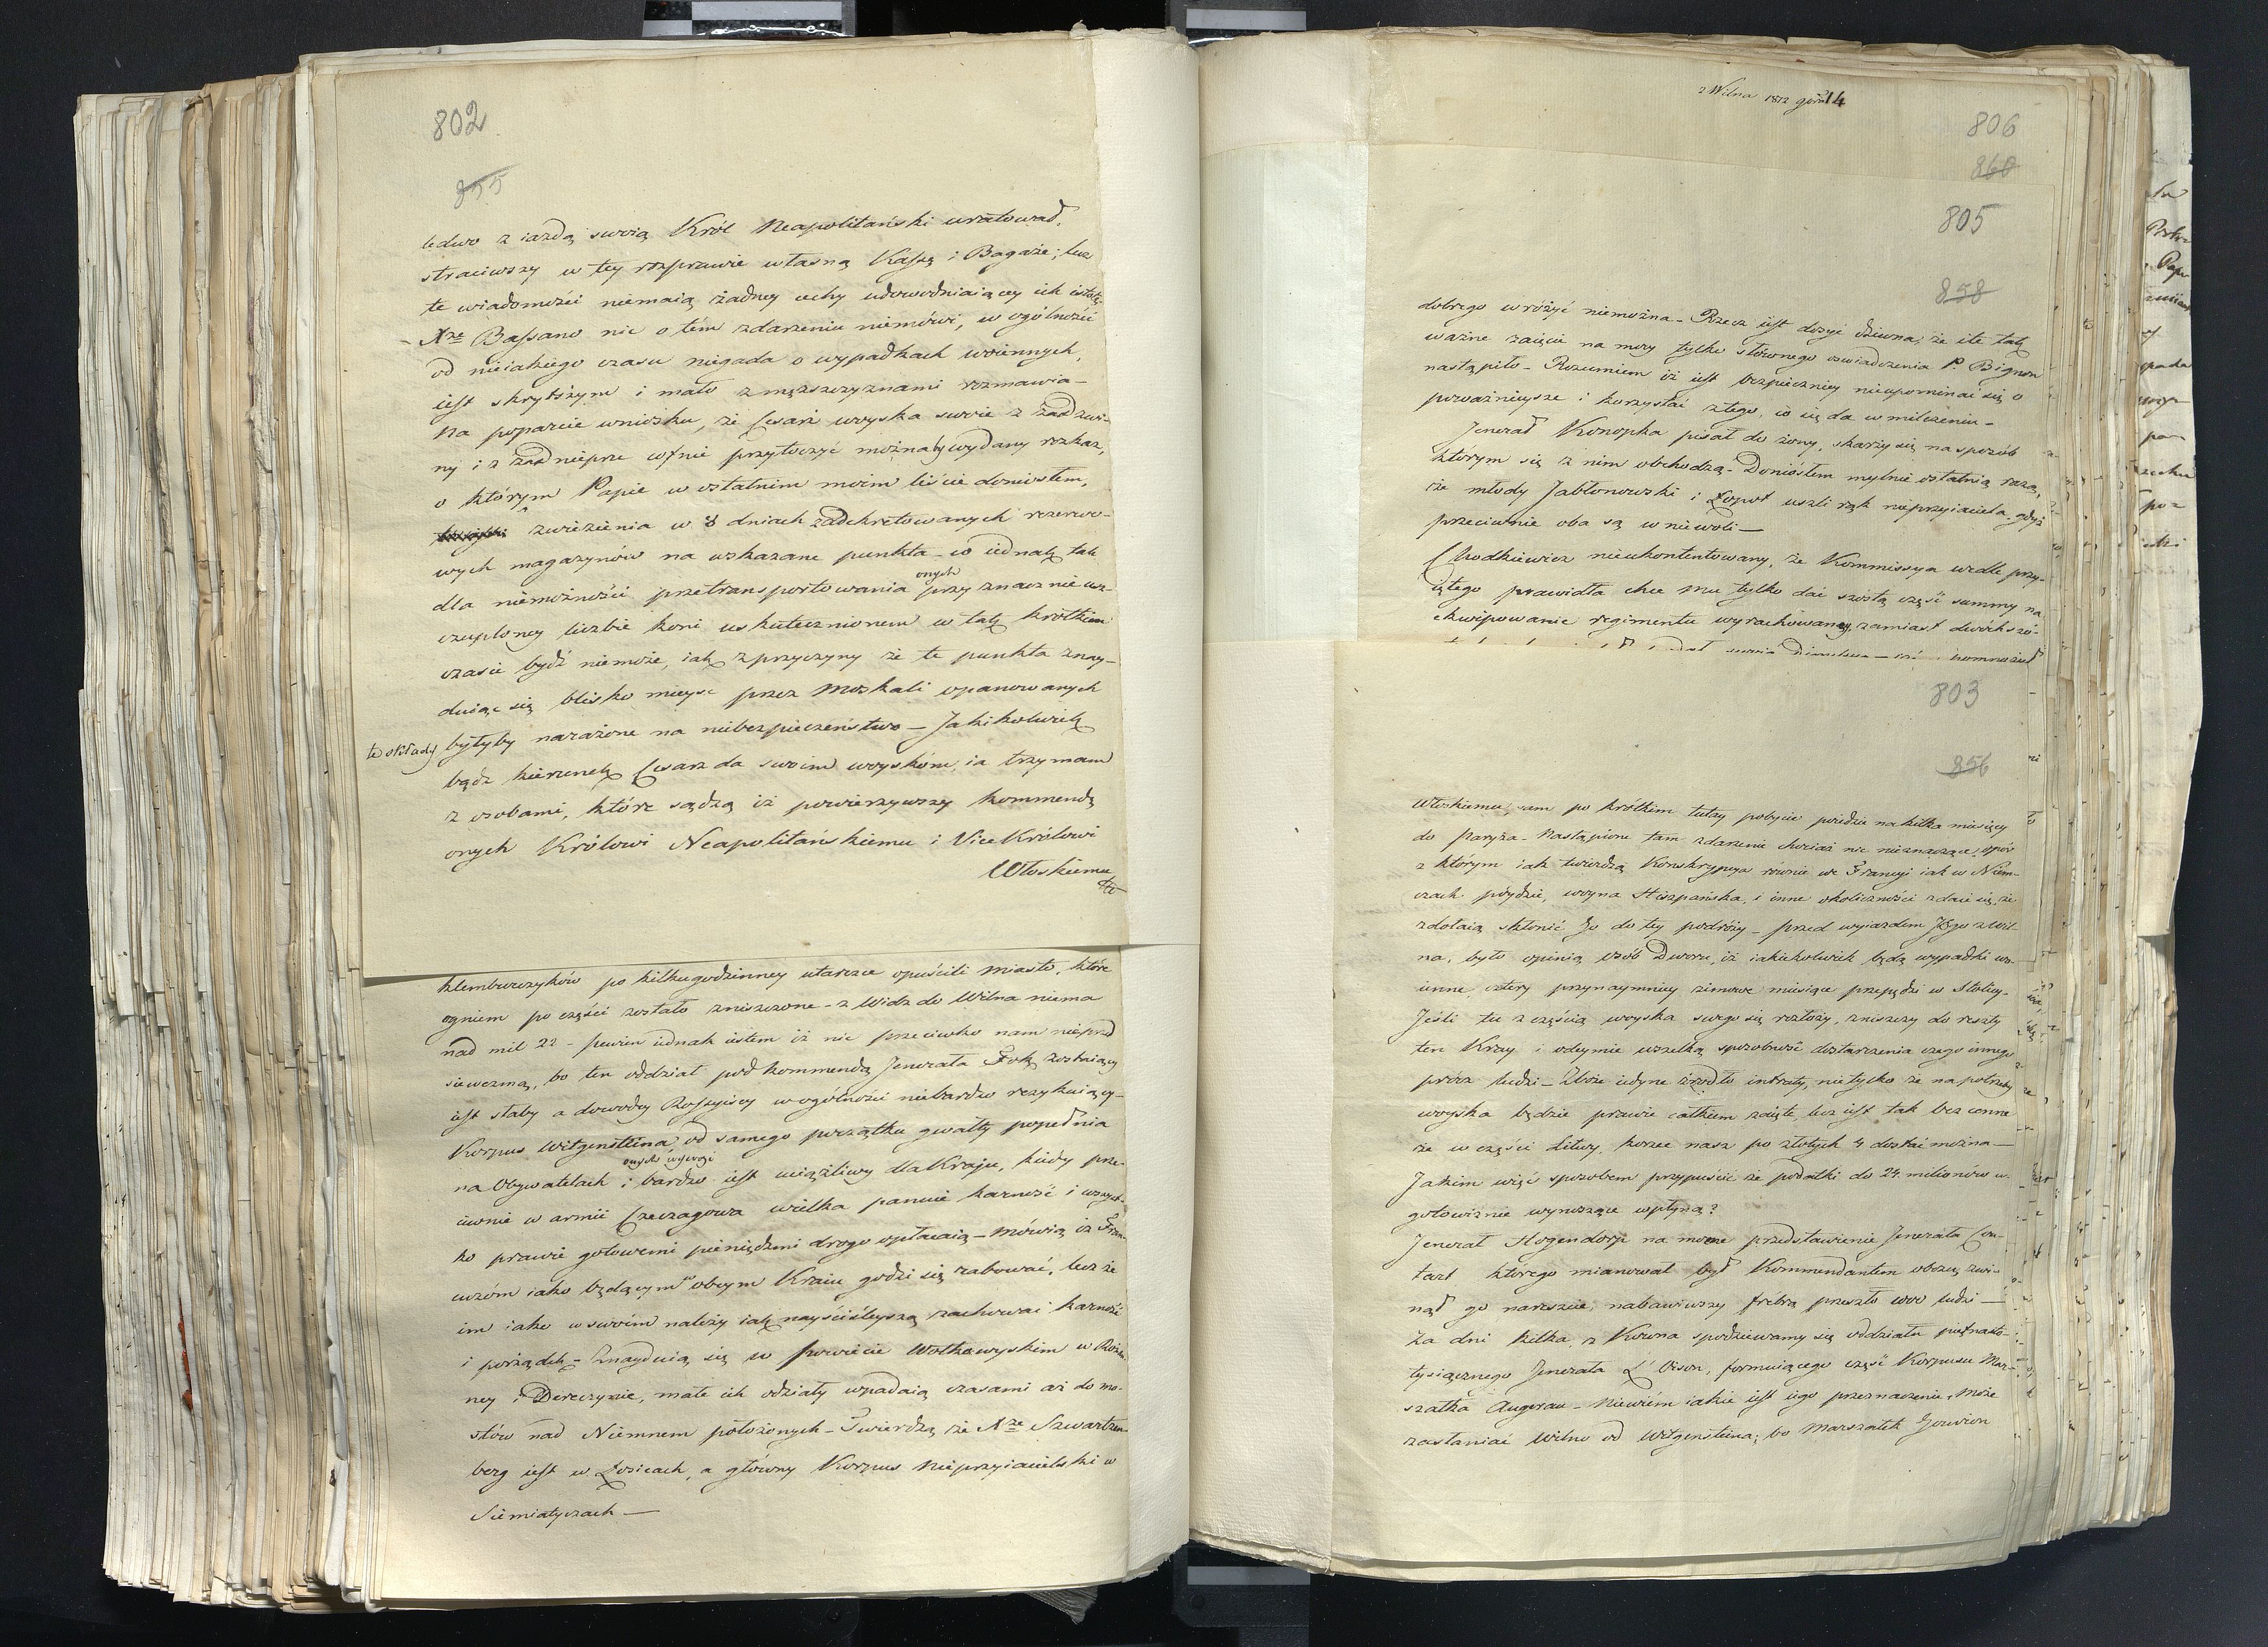 802
855
ledwo z iazdą swoią Król Neapolitański uratował,
straciwszy w tey rozprawie własną Kassę i Bagaże; lecz
te wiadomości niemaią żadney cechy udowodniaiącey ich istotę,
Xże Bassano nic o tém zdarzeniu niemówi, w ogólności
od nieiakiego czasu niegada o wypadkach woiennych,
iest skrytszym i mało z mężczyznami rozmawia –
Na poparcie wniosku, że Cesarz woyska swoie z Zadzwi-
ny i z Zadnieprze przytoczyć można by wydany rozkaz,
o którym Papie w ostatnim moim liście doniosłem,
zwiezienia w 8 dniach zadekretowanych rezerwo-
wych magazynów na wskazane punkta – co iednak tak
dla niemożności przetransportowania onych przy znacznie usz-
czuploney liczbie koni uskutecznionem w tak krótkim
czasie bydź niemoże, iak z przyczyny że te punkta znay-
duiąc się blisko mieysc przez Moskali opanowanych
te składy byłyby narażone na niebezpieczeństwo – Jakikolwiek
bądź kierunek Cesarz da swoim woyskóm, ia trzymam
z osobami, które sądzą iż powierzywszy kommendę
onych Królowi Neapolitańskiemu i Vice Królowi
Włoskiemu
klemburczyków po kilkugodzinney utarczce opuścili miasto, które
ogniem po części zostało zniszczone – z Widz do Wilna niema
nad mil 22 – pewien iednak iestem iż nic przeciwko nam nieprzed
siewezmą, bo ten oddział pod kommendą Jenerała Fok zostaiący
iest słaby a dowódcy Rossyiscy w ogólności niebardzo ryzykuiący –
Korpus Witgensteina od samego początku gwałty popełnia
na Obywatelach i bardzo iest uciążliwy dla Kraju, kiedy prze-
ciwnie w armii Czeczagowa wielka panuie karność i wszyst-
ko prawie gotowemi pieniędzmi drogo opłacaią – mówią iż Fran-
cuzóm iako będącym w obcym Kraiu godzi się rabować, lecz że
im iako w swoim należy iak nayściśleyszą zachować karność
i porządek – Znayduią się w powiecie Wołkowyskim w Różan-
ney i Dereczynie, małe ich odziały wpadaią czasami aż do mo-
stów nad Niemnem położonych – Twierdzą że Xże Szwartzen-
berg iest w Łosicach, a główny Korpus nieprzyiacielski w
Siemiatyczach –
z Wilna 1812 14
806
860
805
858
dobrego wróżyć niemożna – Rzecz iest dosyć dziwna, że ile tak
ważne zaięcie na mocy tylko słównego oswiadczenia P. Bignon
nastąpiło – Rozumiem iż iest bezpieczniey nieupominać się o
poważnieysze i korzystać z tego, co się da w milczeniu –
Jenerał Konopka pisał do żony, skarży się na sposób
którym się z nim obchodzą – Doniósłem mylnie ostatnią razą,
że młody Jabłonowski i Łopot uszli rąk nieprzyiaciela gdyż
przeciwnie oba są w niewoli –
Chodkiewicz nieukontentowany, że Kommissya wedle przy-
iętego prawidła chce mu tylko dać szóstą część summy na
ekwipowanie regimentu wyrachowaney, zamiast dwóch szó-
803
856
Włoskiemu, sam po krótkim tutay pobycie poiedzie na kilka miesięcy
do Paryża – Nastąpione tam zdarzenie chociaż nic nieznaczące, opór
z którym iak twierdzą Konskrypcya równie we Francyi iak w Niem-
czech póydzie, woyna Hiszpańska, i inne okoliczności zdaie się, że
zdołaią skłonić Go do tey podróży – przed wyiazdem Jego z Wil-
na, było opinią osób Dworu, iż iakiekolwiek będą wypadki wo-
ienne, cztery przynaymniey zimowe miesiące przepędzi w Stolicy –
Jeśli tu z częścią woyska swego się rozłoży, zniszczy do reszty
ten Kray i odeymie wszelką sposobność dostarczenia czego innego
prócz ludzi – Zboże iedyne źrzódło intraty, nietylko że na potrzeby
woyska będzie prawie całkiem zaięte, lecz iest tak bez cenne
że w części Litwy, korzec nasz po złotych 4 dostać można –
Jakim więc sposobem przypuścić że podatki do 24 millionów w
gotowiznie wynoszące wpłyną?
Jenerał Hogendorp na mocne przedstawienie Jenerała Cou-
tard którego mianował był Kommendantem obozu, zwi-
nął go nareszcie, nabawiwszy febrą przeszło 1000 ludzi –
Za dni kilka, z Kowna spodziewamy się oddziału piętnasto-
tysiącznego Jenerała L'Oison, formuiącego część Korpusu Mar-
szałka Augerau – Niewiem iakie iest iego przeznaczenie, może
zasłaniać Wilno od Witgensteina; bo Marszałek Gouvion